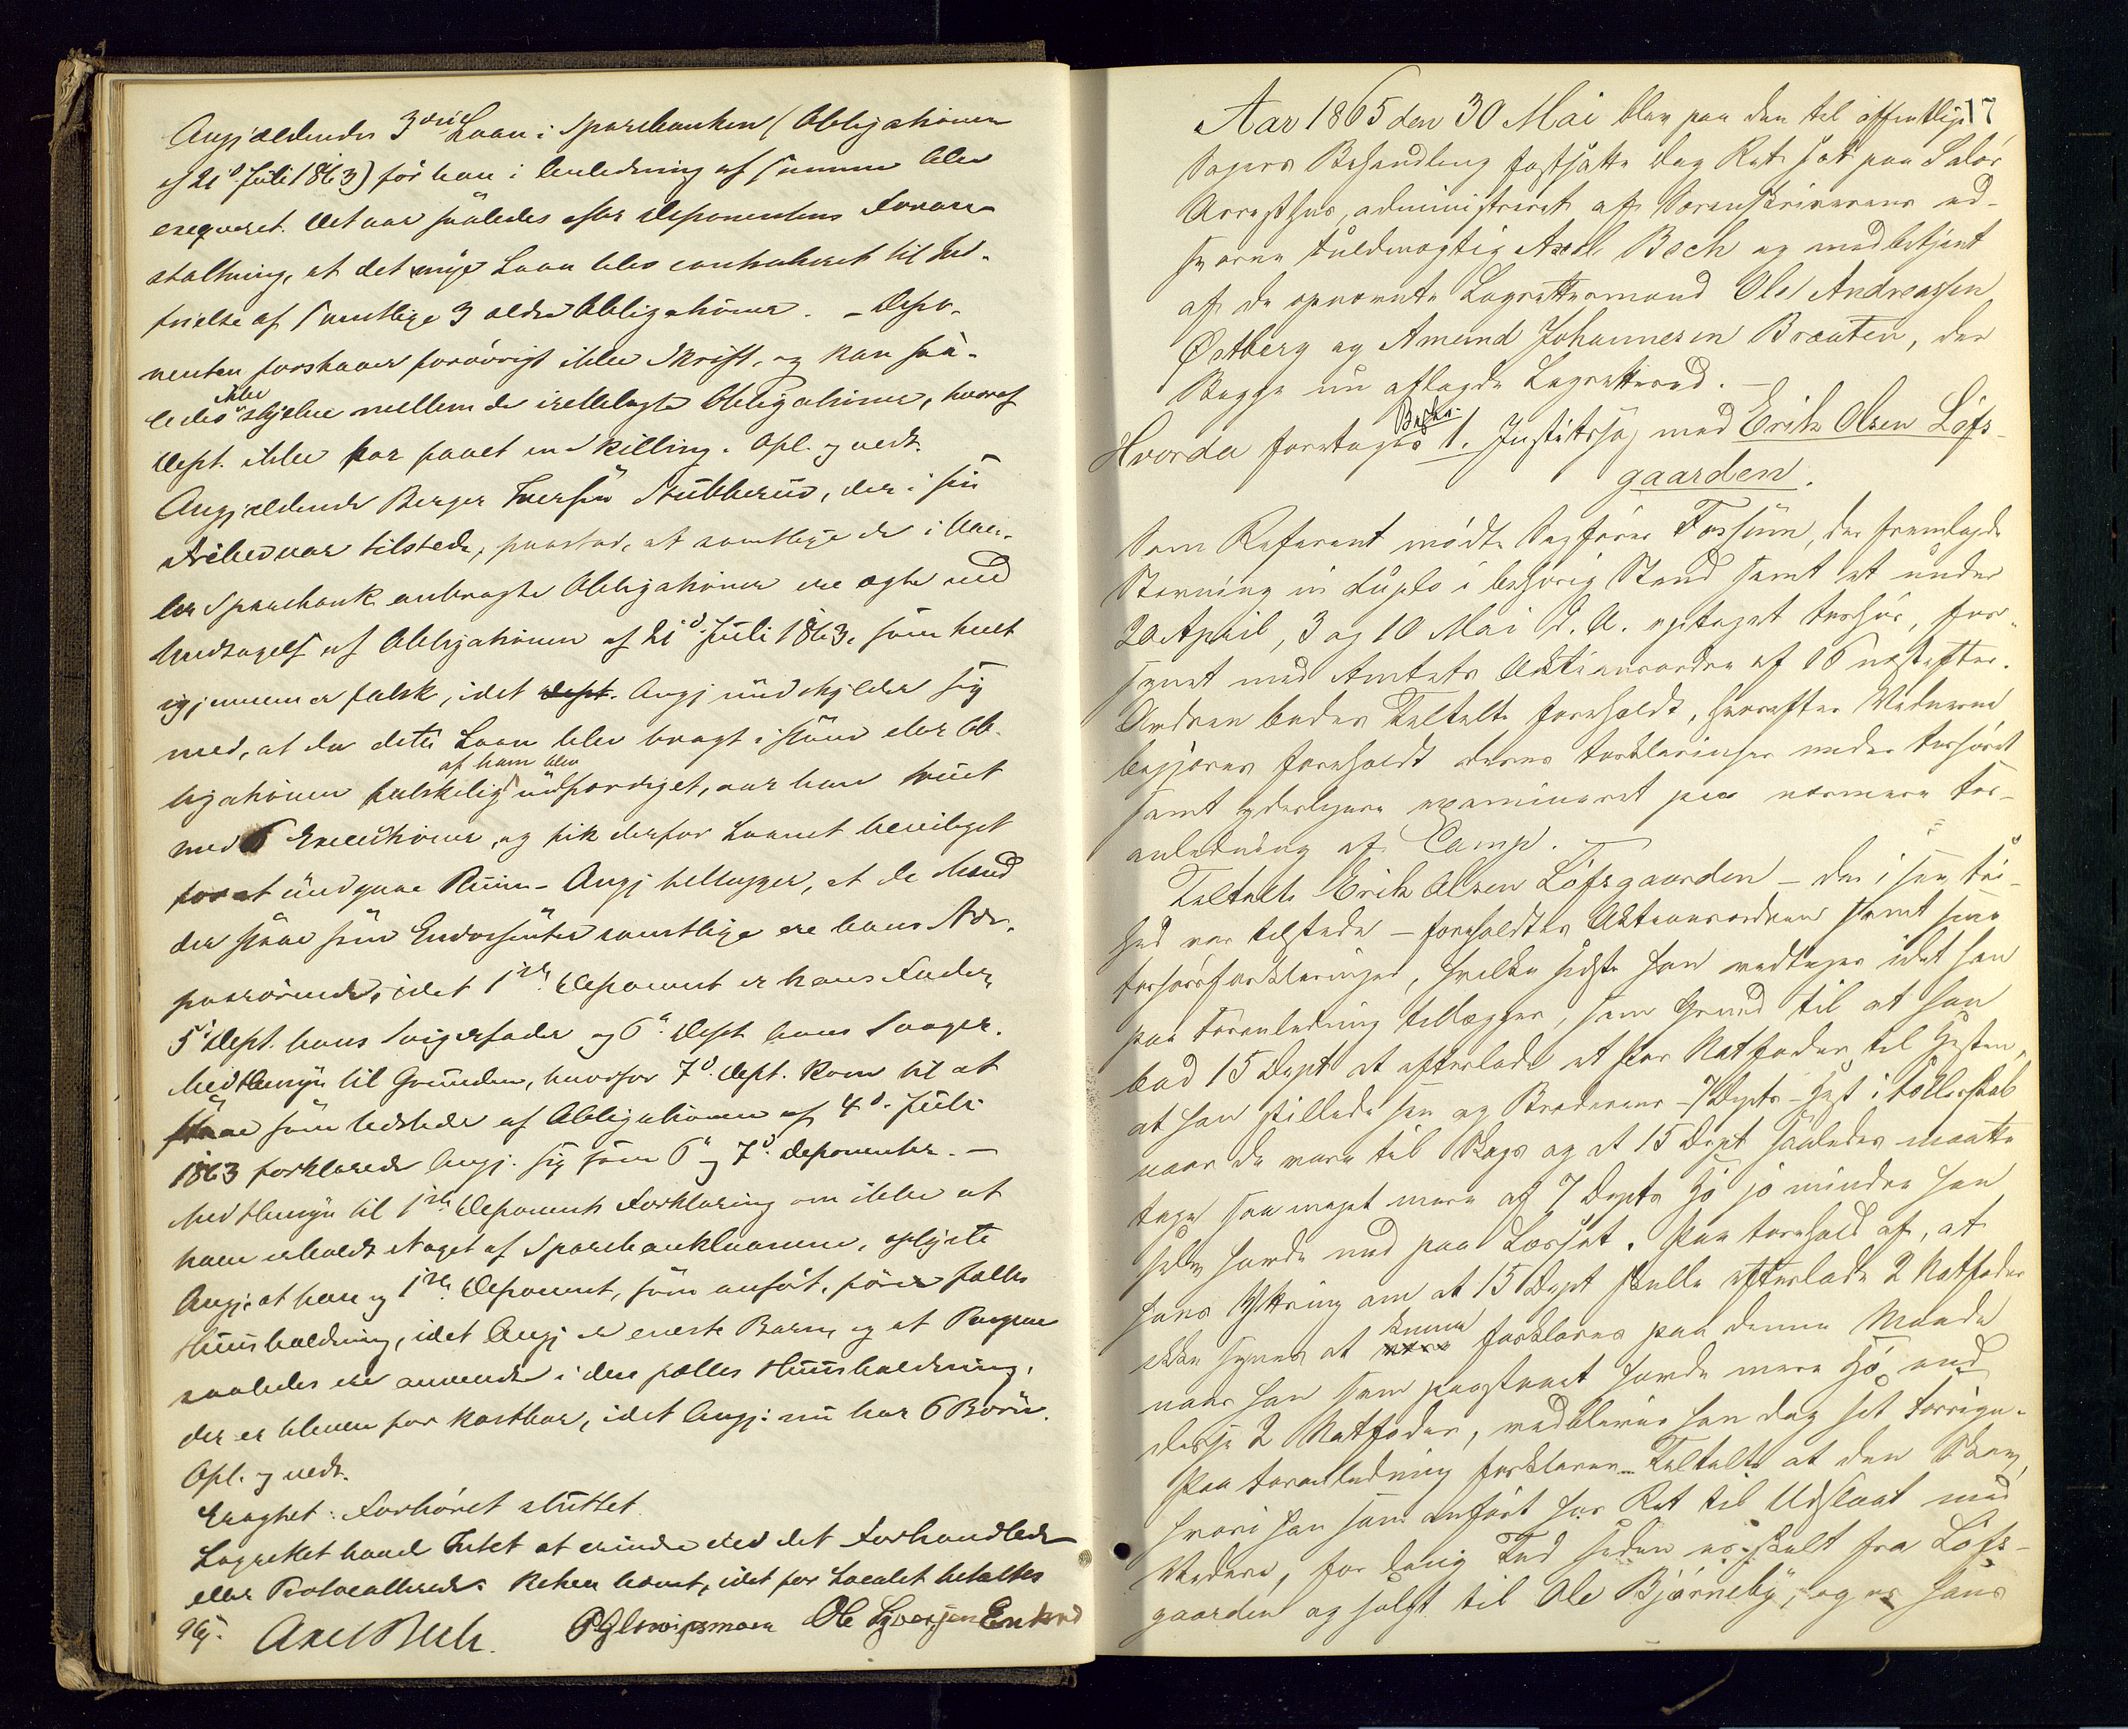 Angjældendes 3die Laan i Sparebanken (Obligationen
af 21de Juli 1863) før han i Anledning af Summen blev
exequeret. Det var saaledes efter Deponentens Foran-
staltning, at det nye Laan blev contraheret til Ind-
frielse af samtlige 3 ældre Obligationer. – Depo-
nenten forstaaer forøvrigt ikke Skrift, og kan saa-
ledes ikke skjelne mellem de irettelagte Obligationer, hvoraf
Dept. ikke har faaet en Skilling. Opl. og vedt.
Angjældende Berger Iversen Stubberud, der i sin
Frihed var tilstede, paastod, at samtlige de i Vaa-
ler Sparebank anbragte Obligationer ere ægte med
Undtagelse af Obligationen af 21de Juli 1863, som heelt
igjennem er falsk, idet Angj. undskylder sig
med, at da dette Laan blev bragt istand eller Ob-
ligationen falskelig af ham blev udfærdiget, var han truet
med 6 Executioner, og fik derfor Laanet bevilget
for at undgaae Ruin – Angj. tillægger, at de Mænd
der staae som Endossenter samtlige ere hans Nær-
paarørende, idet 1ste Deponent er hans Fader,
5te Dept. hans Svigerfader og 6te Dept. hans Svoger.
Med Hensyn til Grunden, hvorfor 7de Dept. kom til at
staae som Udsteder af Obligationen af 4de Juli
1863 forklarede Angj. sig som 6te og 7de Deponenter. –
Med Hensyn til 1ste Deponents Forklaring om ikke at
have erholdt Noget af Sparebanklaanene, oplyste
Angj. at han og 1ste Deponent, som anført, fører fælles
Huusholdning, idet Angj. er eneste Barn, og at Pengene
saaledes ere anvendte i den fælles Huusholdning,
der er bleven for kostbar, idet Angj. nu har 6 Børn.
Opl. og vedt.
Eragtet: Forhøret sluttet.
Lagrettet havde Intet at erindre ved det Forhandlede
eller Protocollerede. Retten hævet, idet for Localet betaltes
Axel Bech. Ole Syversen Enkrud
17
Aar 1865 den 30 Mai blev paa den til offentlige
Sagers Behandling fastsatte Dag Ret sat paa Solør
Arresthus, administreret af Sorenskriverens ed-
svorne Fuldmægtig Axel Bech og medbetjent
af de opnævnte Lagrettesmænd Ole Andreassen
Østberg og Amund Johannesen Braaten, der
Begge nu aflagde Lagretteed. –
Hvorda foretages 1. Justitssag mod Erik Olsen Løfs-
gaarden.
Som Referent mødte Sagfører Fossum, der fremlagde
Stevning in duplo i behørig Stand samt et under
20 April, 3 og 10 Mai d. A. optaget Forhør, for-
synet med Amtets Aktionsordre af 16 næstefter.
Ordren bedes Tiltalte foreholdt, hvorefter Vidnerne
begjæres foreholdt deres Forklaringer under Forhøret
samt yderligere examineret paa nærmere For-
anledning af Comp. –
Tiltalte Erik Olsen Løfsgaarden – der i sin Fri-
hed var tilstede – foreholdtes Aktionsordren samt sine
Forhørsforklaringer, hvilke sidste han vedtager idet han
paa Foranledning tillægger, som Grund til at han
bad 15 Dept at efterlade et par Natfoder til Hesten,
at han stillede sin og Broderens – 7 Depts – Hest i Fællesskab
naar de vare til Skogs og at 15 Dept saaledes maatte
tage saa meget mere af 7 Depts Hø jo mindre han
selv havde med paa Læsset. Paa Forehold af, at
hans Yttring om at 15 Dept skulle efterlade 2 Natfoder
ikke synes at kunne forklares paa denne Maade
naar han som paastaaet havde mere Hø end
disse 2 Natfoder, vedbliver han dog sit Forrige.
Paa Foranledning forklarer Tiltalte at den Skov,
hvori han som anført har Ret til Udslaat med
Videre, for lang Tid siden er skilt fra Løfs-
gaarden og solgt til Ole Bjørneby, og er hans